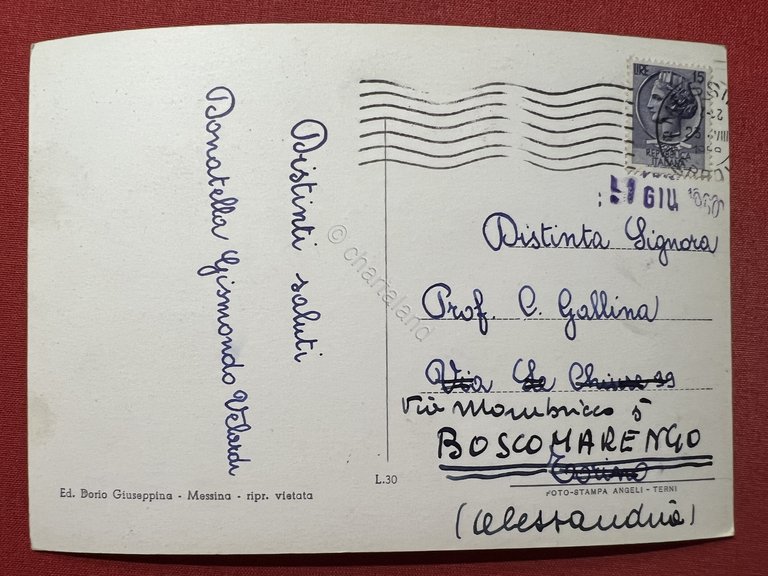 Distinti saluti
Donatella Gismondo Velardi
LIRE 15
REPUBBLICA
ITALIANA
GIU
Distinta Signora
Prof. C. Gallina
Via Le Chiuse 99
Via Mombricco 5
BOSCOMARENGO
Torino
(Alessandria)
L.30
Ed. Dorio Giuseppina - Messina - ripr. vietata
FOTO-STAMPA ANGELI - TERNI
© chartaland